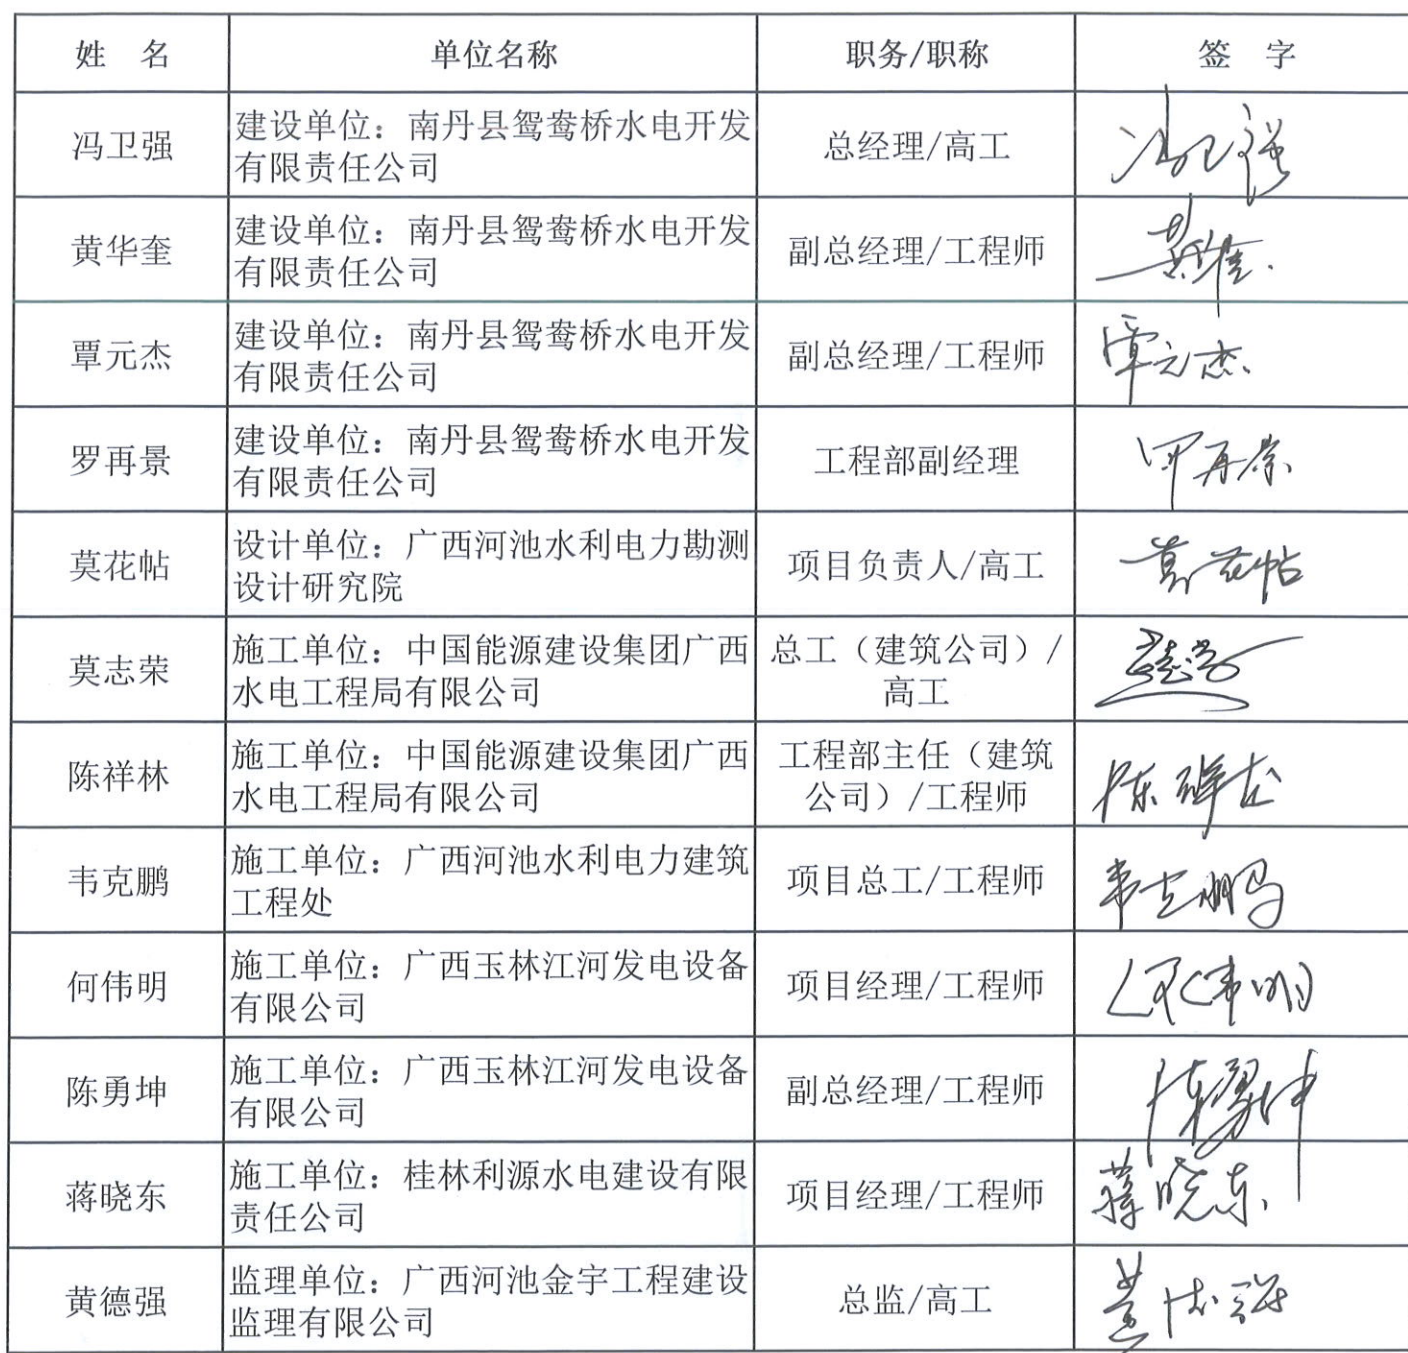 姓 名 单位名称 职务/职称 签 字
冯卫强 建设单位：南丹县鸳鸯桥水电开发有限责任公司 总经理/高工 冯卫强
黄华奎 建设单位：南丹县鸳鸯桥水电开发有限责任公司 副总经理/工程师 黄华奎
覃元杰 建设单位：南丹县鸳鸯桥水电开发有限责任公司 副总经理/工程师 覃元杰
罗再景 建设单位：南丹县鸳鸯桥水电开发有限责任公司 工程部副经理 罗再景
莫花帖 设计单位：广西河池水利电力勘测设计研究院 项目负责人/高工 莫花帖
莫志荣 施工单位：中国能源建设集团广西水电工程局有限公司 总工（建筑公司）/高工 莫志荣
陈祥林 施工单位：中国能源建设集团广西水电工程局有限公司 工程部主任（建筑公司）/工程师 陈祥林
韦克鹏 施工单位：广西河池水利电力建筑工程处 项目总工/工程师 韦克鹏
何伟明 施工单位：广西玉林江河发电设备有限公司 项目经理/工程师 何伟明
陈勇坤 施工单位：广西玉林江河发电设备有限公司 副总经理/工程师 陈勇坤
蒋晓东 施工单位：桂林利源水电建设有限责任公司 项目经理/工程师 蒋晓东
黄德强 监理单位：广西河池金宇工程建设监理有限公司 总监/高工 黄德强